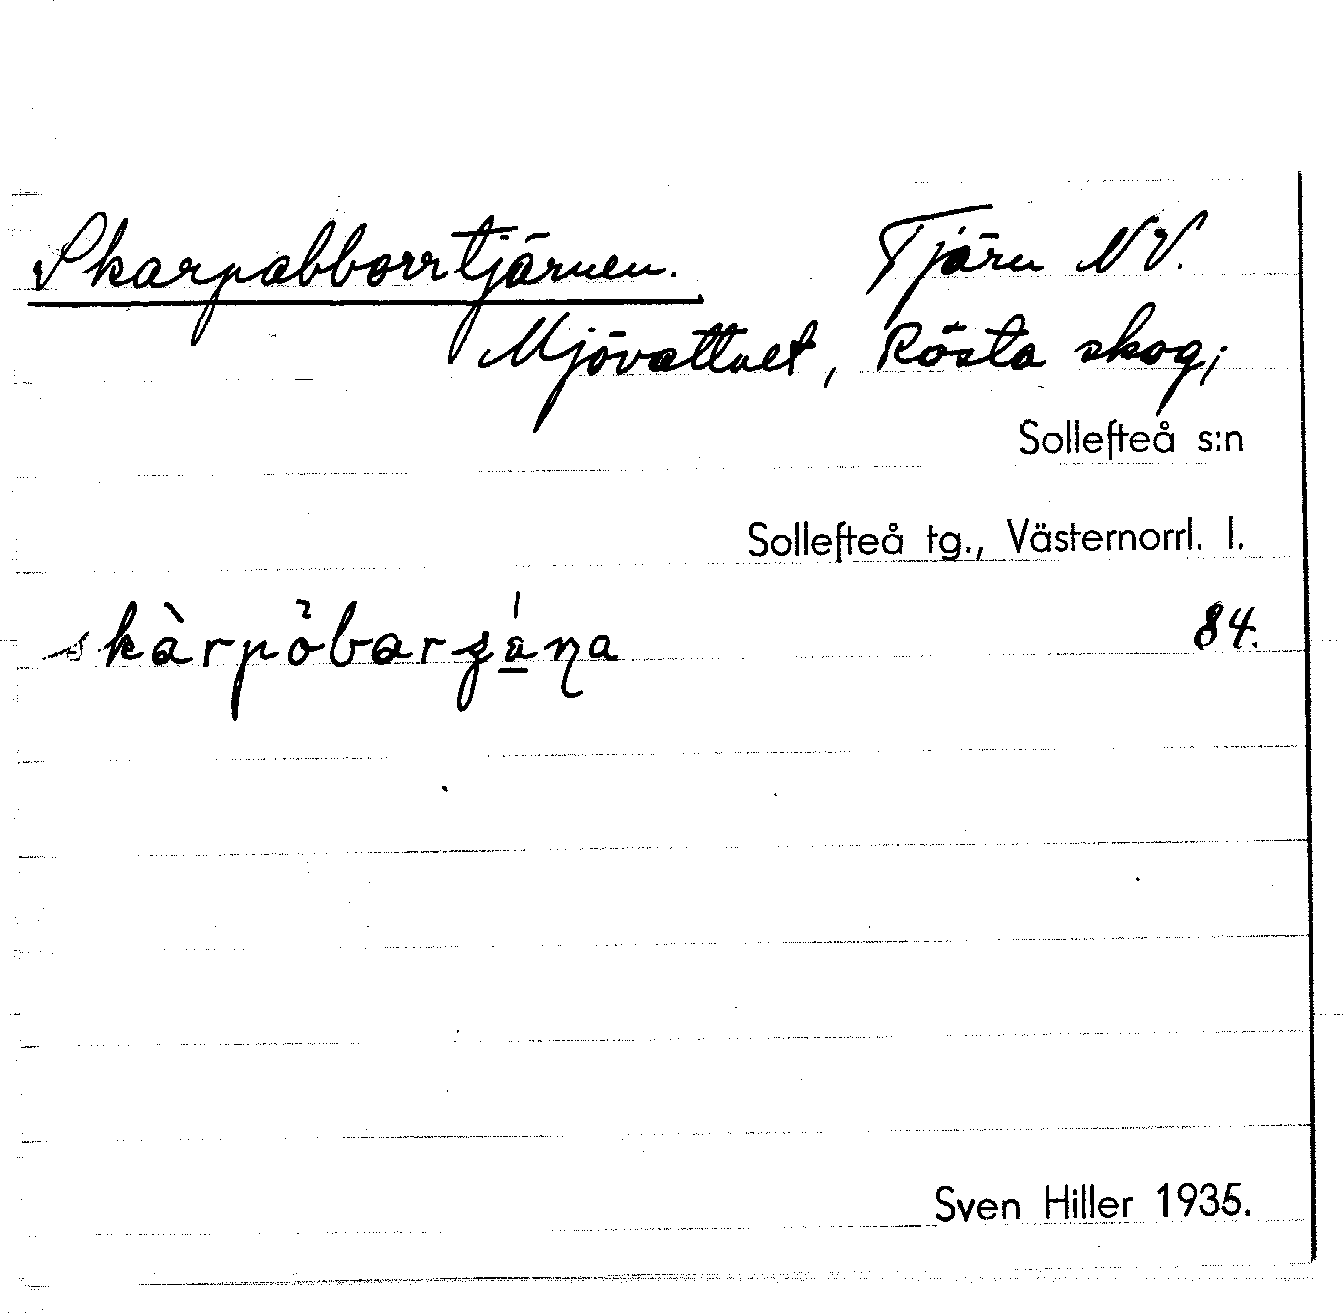 Skarpabborrtjärnen. Tjärn NV.
Mjövattnet, Rösta skog;
Sollefteå s:n
Sollefteå tg., Västernorrl. l.
84.
Sven Hiller 1935.